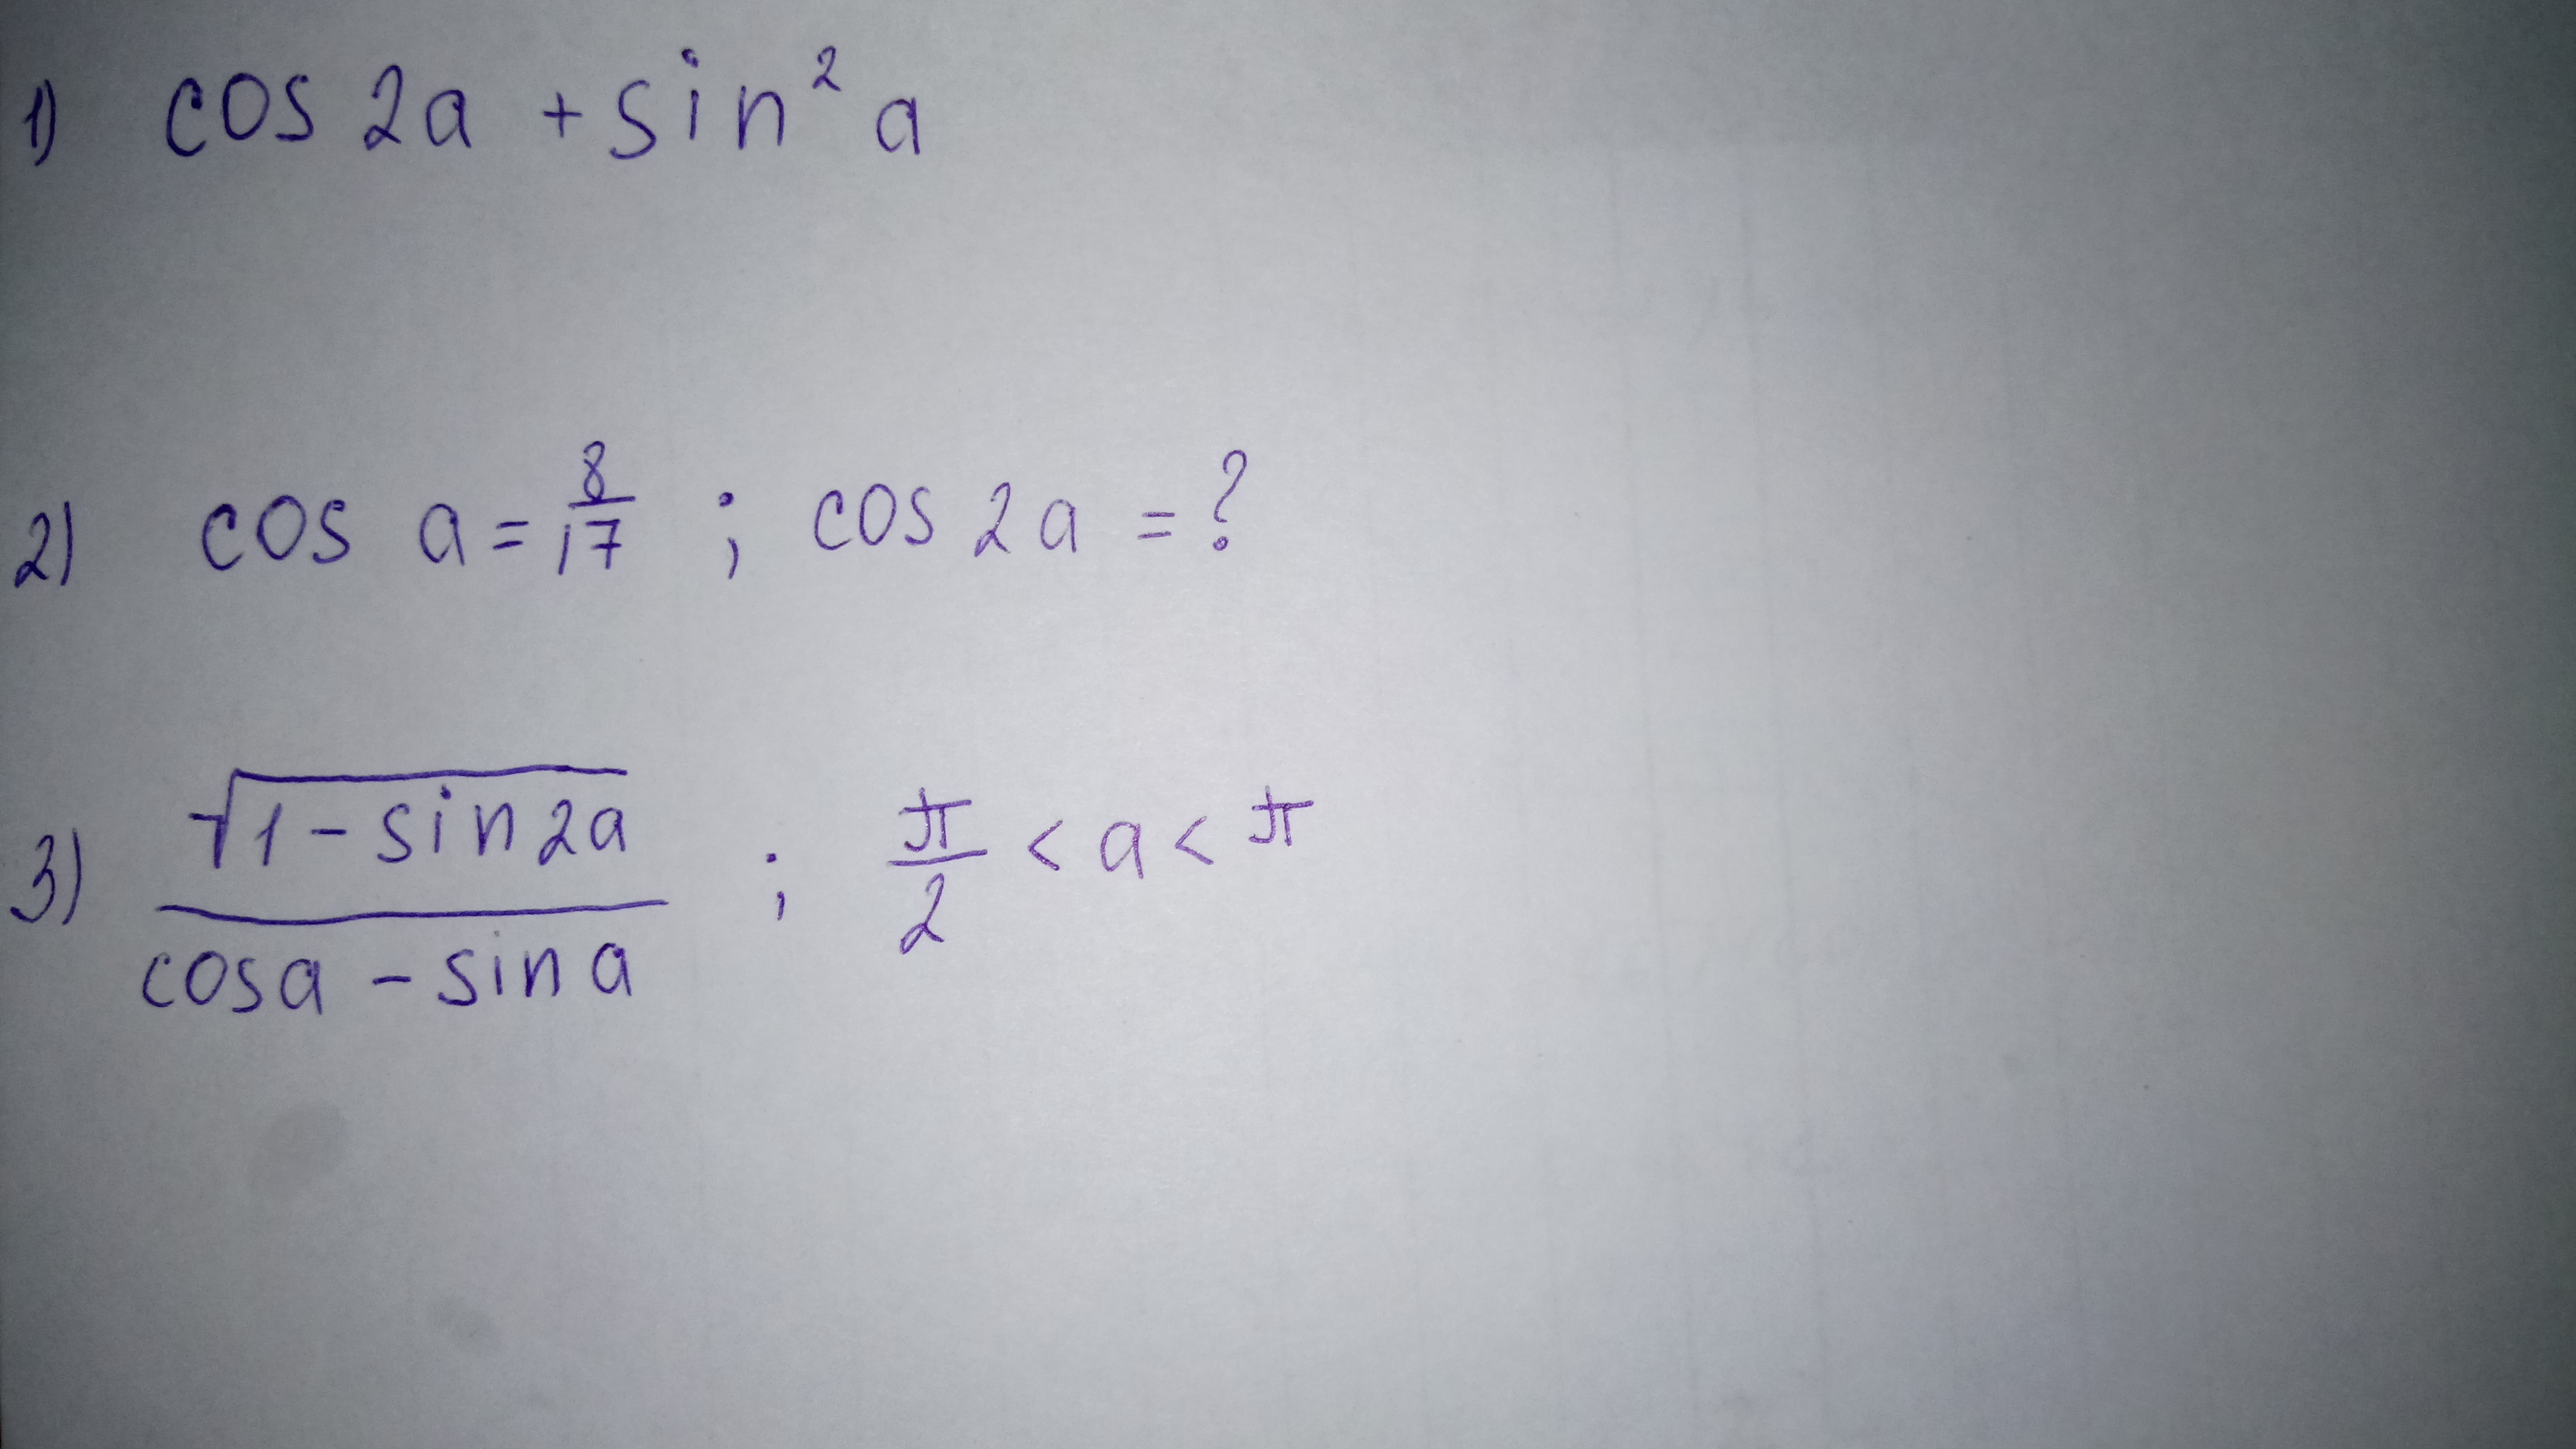 1) cos 2a + sin² a
2) cos a = 8/17 ; cos 2a = ?
3) √(1 - sin 2a) / (cos a - sin a) ; π/2 < a < π